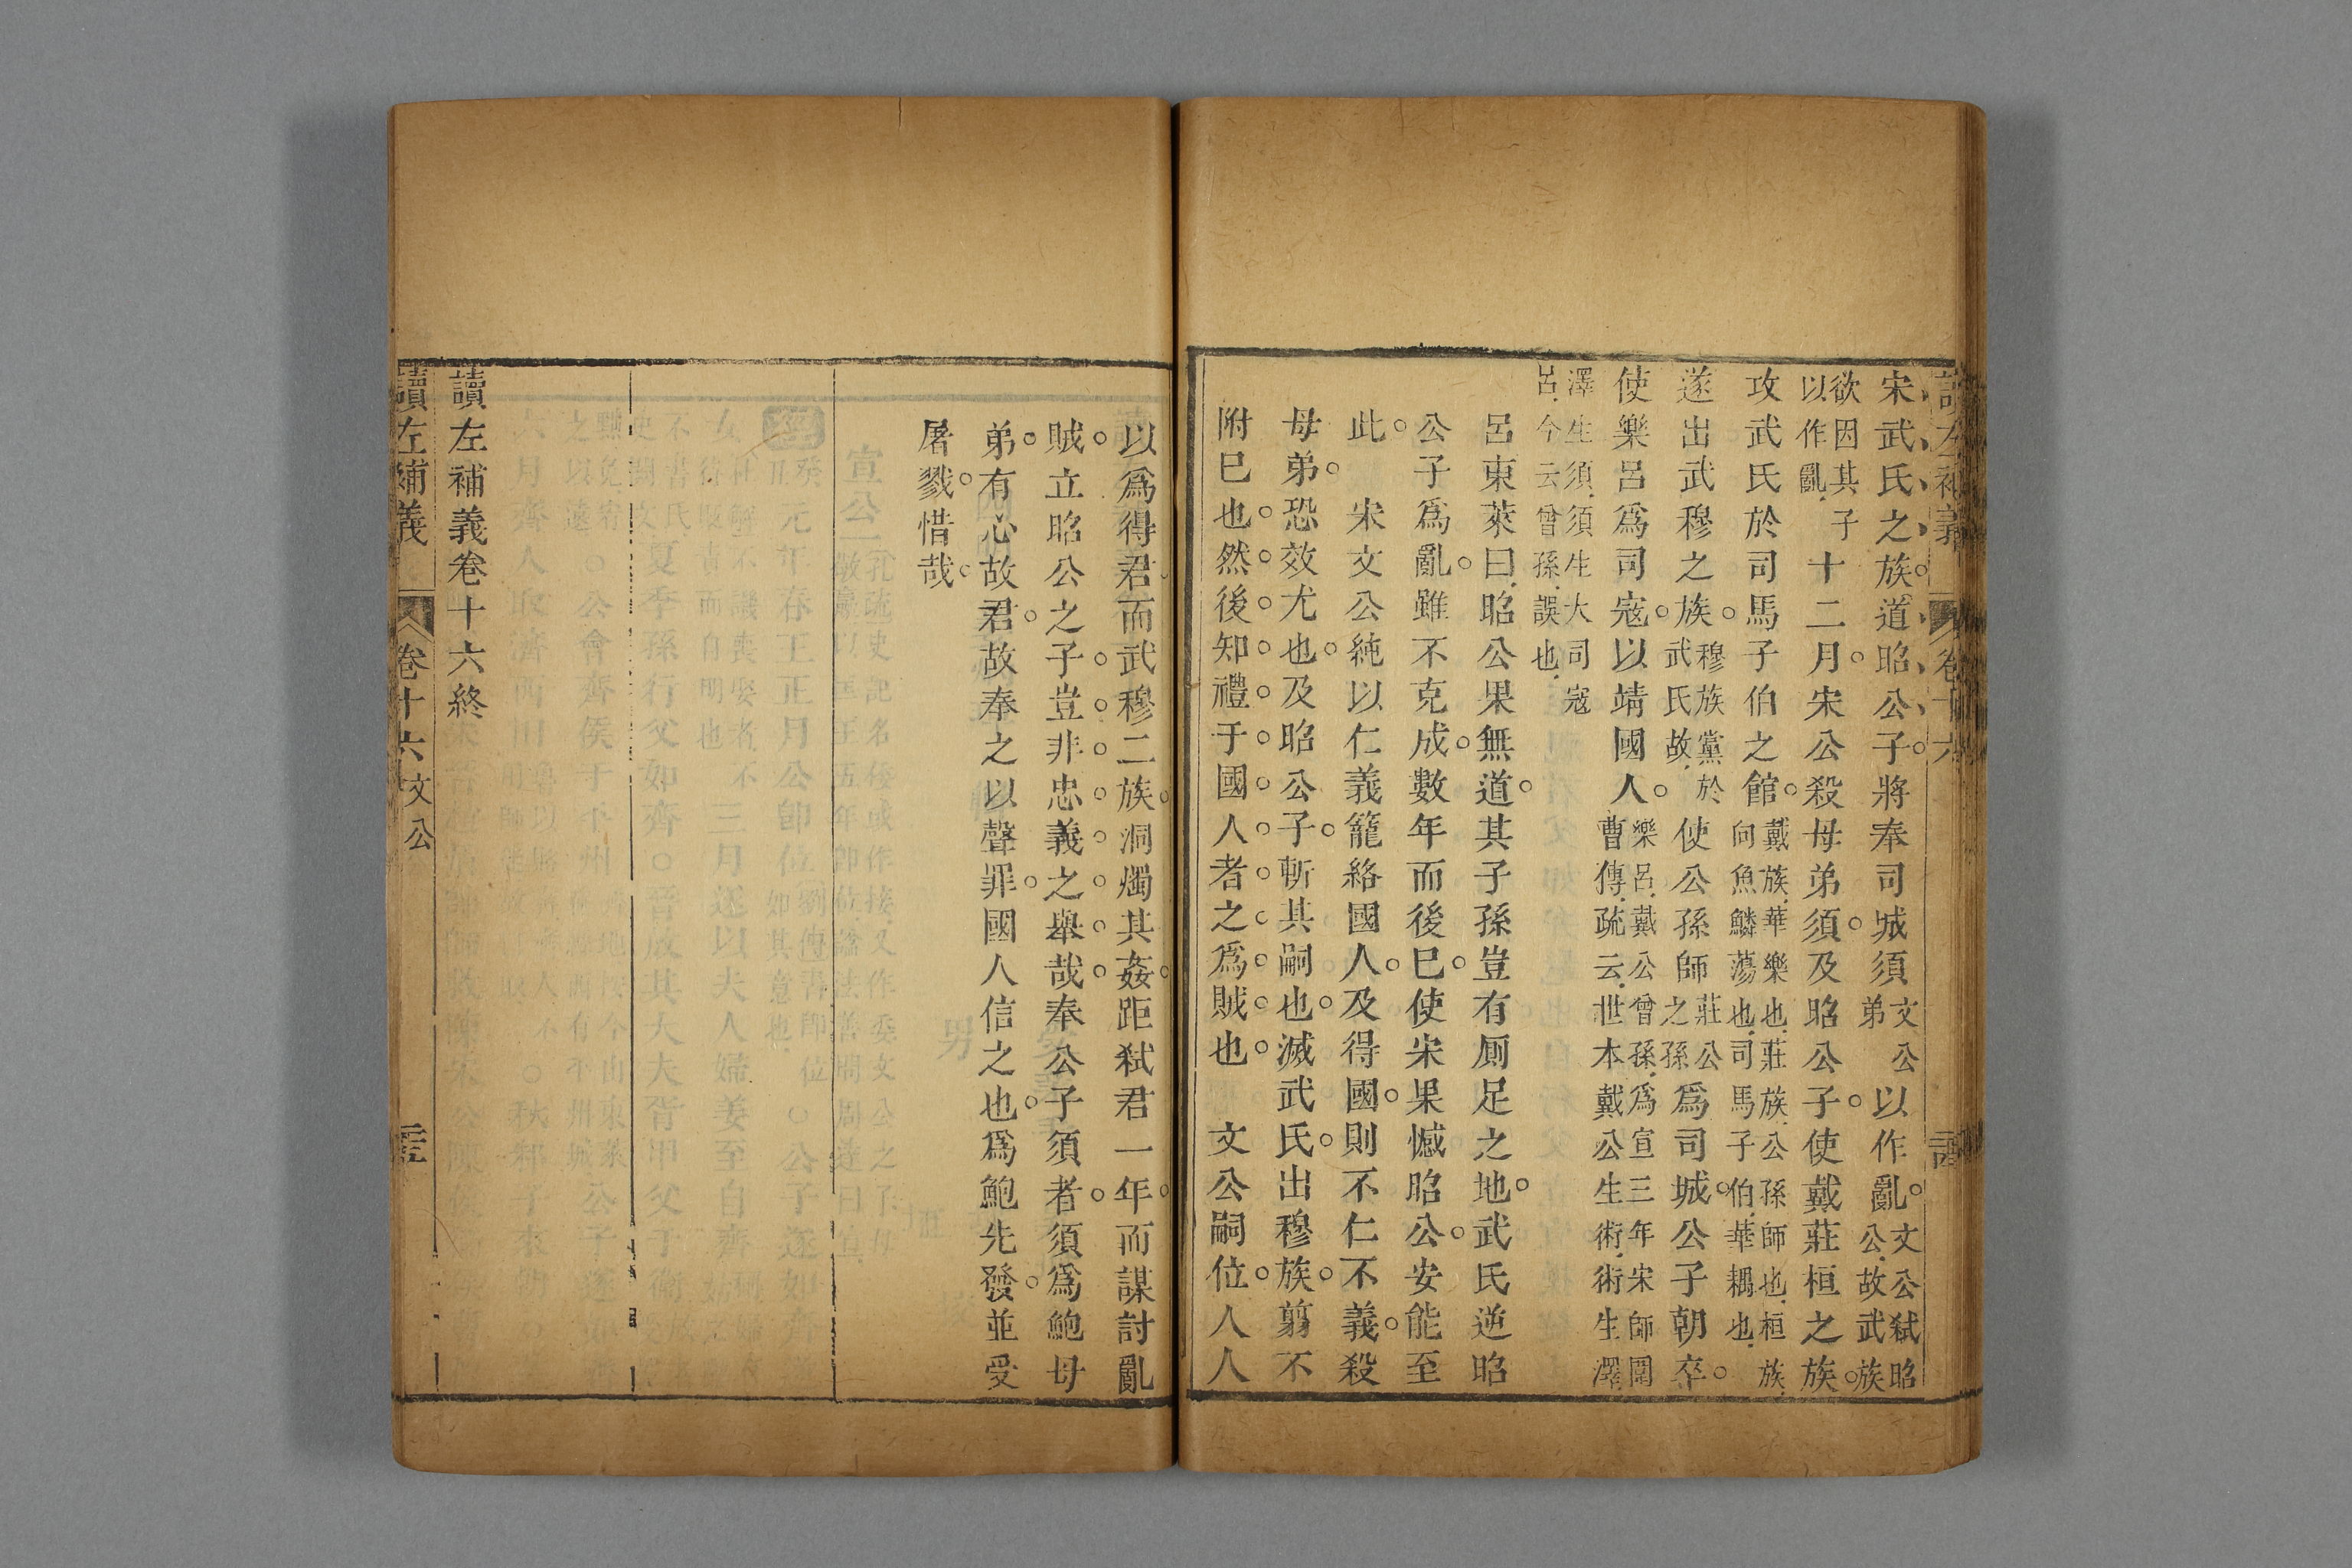 宋武氏之族道昭公子將奉司城須文公弟以作亂文公弒昭公故武族
欲因其子以作亂十二月宋公殺母弟須及昭公子使戴莊桓之族
攻武氏於司馬子伯之館戴族華樂也莊族公孫師也桓族向魚鱗蕩也司馬子伯華耦也
遂出武穆之族穆族黨於武氏故使公孫師莊公之孫爲司城公子朝卒
使樂呂爲司寇以靖國人樂呂戴公曾孫爲宣三年宋師圍曹傳疏云世本戴公生術術生澤
澤生須須生大司寇呂今云曾孫誤也
呂東萊曰昭公果無道其子孫豈有厠足之地武氏逆昭
公子爲亂雖不克成數年而後巳使宋果憾昭公安能至
此 宋文公純以仁義籠絡國人及得國則不仁不義殺
母弟恐效尤也及昭公子斬其嗣也滅武氏出穆族翦不
附巳也然後知禮于國人者之爲賊也 文公嗣位人人
以爲得君而武穆二族洞燭其姦距弒君一年而謀討亂
賊立昭公之子豈非忠義之舉哉奉公子須者須爲鮑母
弟有心故君故奉之以聲罪國人信之也爲鮑先發並受
屠戮惜哉
讀左補義卷十六終
讀左補義 卷十六 文公 三五